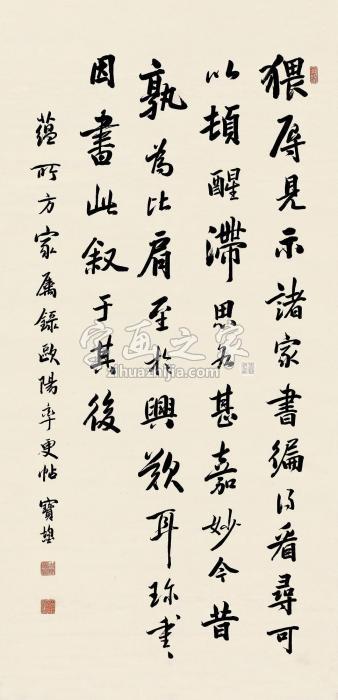 猥辱見示諸家書編得看尋可
以頓醒滯思尤甚嘉妙今昔
孰為比肩至於興歎耳珎書、
因書此叙于其後
蘊所方家屬錄歐陽率更帖 寶
字画之家
zihuazhijia.com